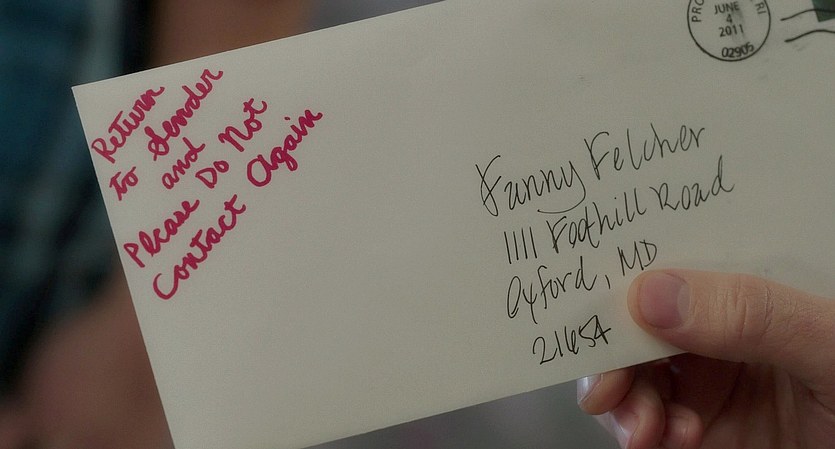 Return
to Sender
and
Please Do Not
Contact Again
PRO RI
JUNE
4
2011
02905
Fanny Felcher
1111 Foothill Road
Oxford, MD
21654